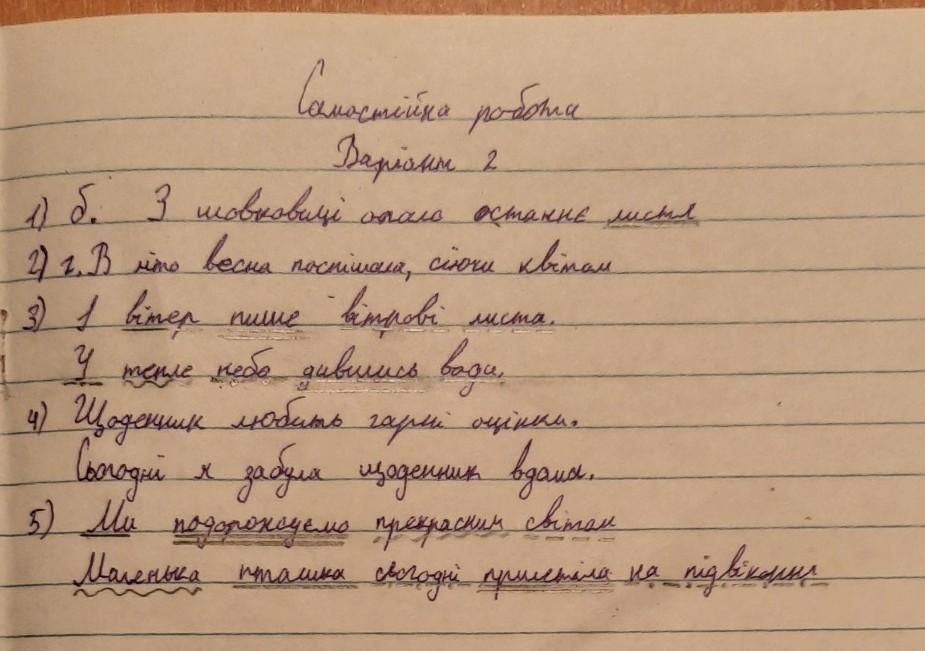 Самостійна робота
Варіант 2
1) б. З шовковиці опало останнє листя
2) г. В літо весна поспішала, сіючи квітам
3) І вітер пише вітрові листа.
У тепле небо дивились води.
4) Щоденник любить гарні оцінки.
Сьогодні я забула щоденник вдома.
5) Ми подорожуємо прекрасним світом
Маленька пташка сьогодні прилетіла на підвіконня